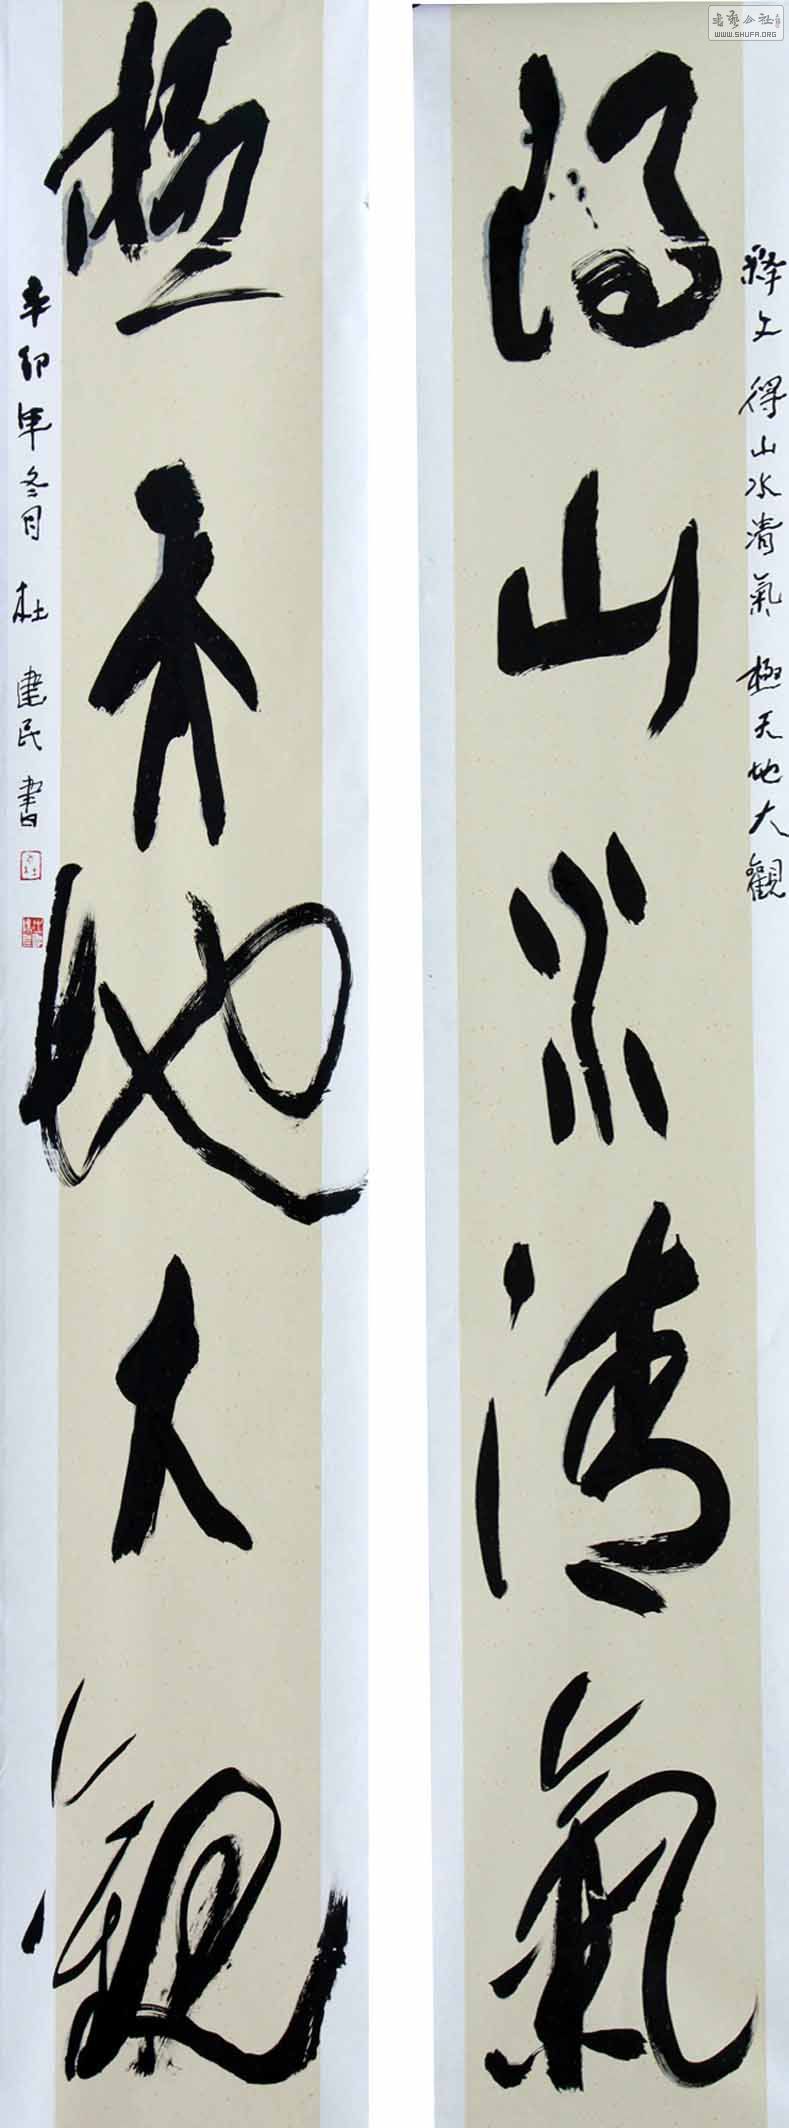 得山水清氣
極天地大觀
释文 得山水清氣 極天地大觀
辛卯年冬月 杜建民書
书艺公社
WWW.SHUFA.ORG